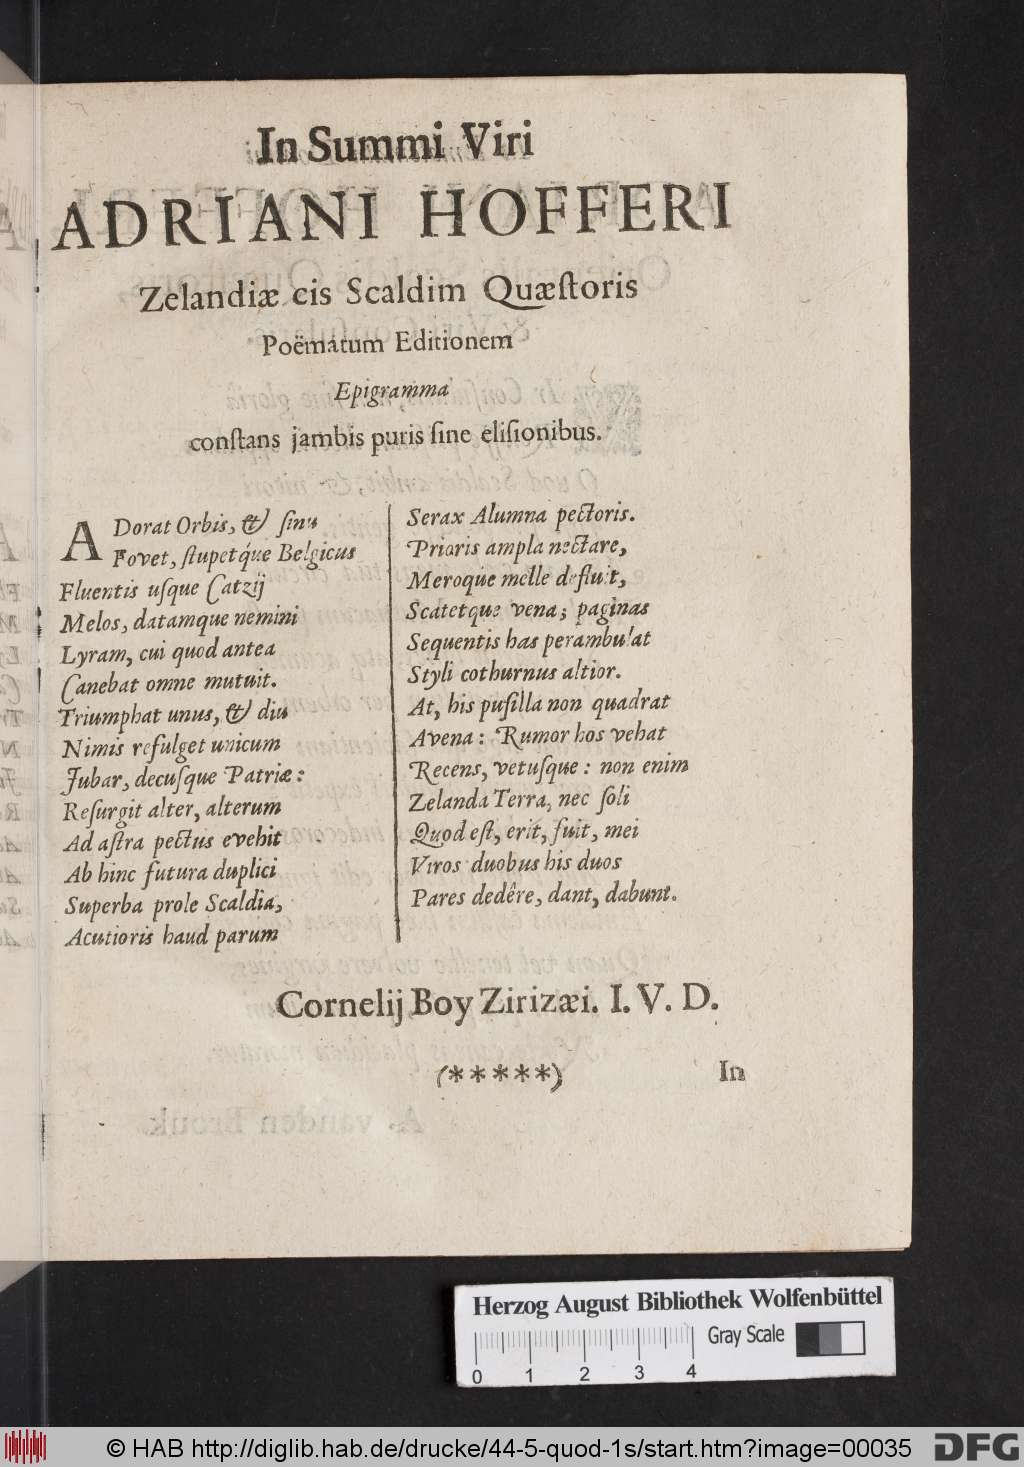 In Summi Viri
ADRIANI HOFFERI
Zelandiæ cis Scaldim Quæſtoris
Poëmatum Editionem
Epigramma
conſtans jambis puris ſine eliſionibus.
ADorat Orbis, & ſinu
Fovet, ſtupetq́ue Belgicus
Fluentis uſque Catzij
Melos, datamque nemini
Lyram, cui quod antea
Canebat omne mutuit.
Triumphat unus, & diu
Nimis refulget unicum
Jubar, decuſque Patriæ:
Reſurgit alter, alterum
Ad aſtra pectus evehit
Ab hinc futura duplici
Superba prole Scaldia,
Acutioris haud parum
Serax Alumna pectoris.
Prioris ampla nectare,
Meroque melle defluit,
Scatetque vena; paginas
Sequentis has perambulat
Styli cothurnus altior.
At, his puſilla non quadrat
Avena: Rumor hos vehat
Recens, vetuſque: non enim
Zelanda Terra, nec ſoli
Quod eſt, erit, fuit, mei
Viros duobus his duos
Pares dedêre, dant, dabunt.
Cornelij Boy Zirizæi. I. V. D.
(*****)
In
Herzog August Bibliothek Wolfenbüttel
Gray Scale
0 1 2 3 4
© HAB http://diglib.hab.de/drucke/44-5-quod-1s/start.htm?image=00035
DFG